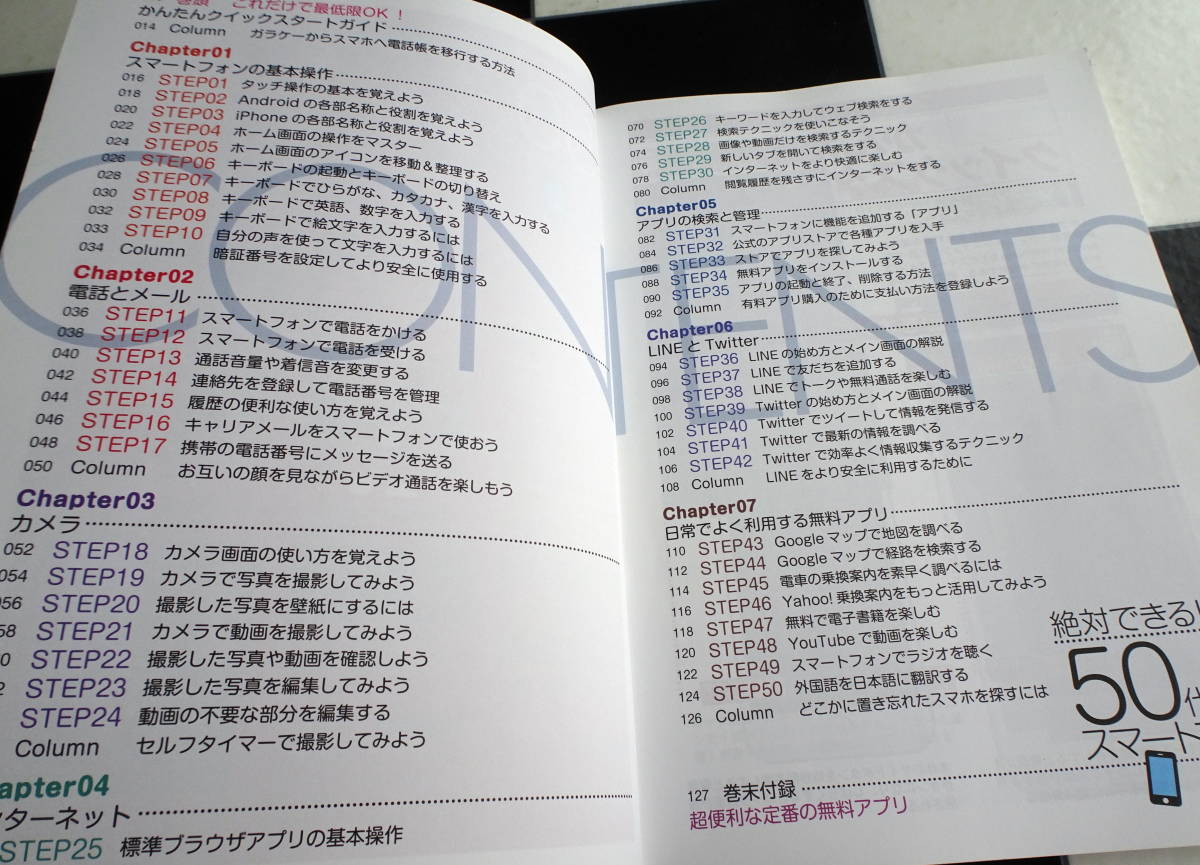 巻頭 これだけで最低限OK!
かんたんクイックスタートガイド
014 Column ガラケーからスマホへ電話帳を移行する方法
Chapter01
スマートフォンの基本操作
016 STEP01 タッチ操作の基本を覚えよう
018 STEP02 Androidの各部名称と役割を覚えよう
020 STEP03 iPhoneの各部名称と役割を覚えよう
022 STEP04 ホーム画面の操作をマスター
024 STEP05 ホーム画面のアイコンを移動&整理する
026 STEP06 キーボードの起動とキーボードの切り替え
028 STEP07 キーボードでひらがな、カタカナ、漢字を入力する
030 STEP08 キーボードで英語、数字を入力する
032 STEP09 キーボードで絵文字を入力するには
033 STEP10 自分の声を使って文字を入力するには
034 Column 暗証番号を設定してより安全に使用する
Chapter02
電話とメール
036 STEP11 スマートフォンで電話をかける
038 STEP12 スマートフォンで電話を受ける
040 STEP13 通話音量や着信音を変更する
042 STEP14 連絡先を登録して電話番号を管理
044 STEP15 履歴の便利な使い方を覚えよう
046 STEP16 キャリアメールをスマートフォンで使おう
048 STEP17 携帯の電話番号にメッセージを送る
050 Column お互いの顔を見ながらビデオ通話を楽しもう
Chapter03
カメラ
052 STEP18 カメラ画面の使い方を覚えよう
054 STEP19 カメラで写真を撮影してみよう
056 STEP20 撮影した写真を壁紙にするには
58 STEP21 カメラで動画を撮影してみよう
0 STEP22 撮影した写真や動画を確認しよう
2 STEP23 撮影した写真を編集してみよう
STEP24 動画の不要な部分を編集する
Column セルフタイマーで撮影してみよう
apter04
ターネット
STEP25 標準ブラウザアプリの基本操作
CONTENTS
070 STEP26 キーワードを入力してウェブ検索をする
072 STEP27 検索テクニックを使いこなそう
074 STEP28 画像や動画だけを検索するテクニック
076 STEP29 新しいタブを開いて検索をする
078 STEP30 インターネットをより快適に楽しむ
080 Column 閲覧履歴を残さずにインターネットをする
Chapter05
アプリの検索と管理
082 STEP31 スマートフォンに機能を追加する「アプリ」
084 STEP32 公式のアプリストアで各種アプリを入手
086 STEP33 ストアでアプリを探してみよう
088 STEP34 無料アプリをインストールする
090 STEP35 アプリの起動と終了、削除する方法
092 Column 有料アプリ購入のために支払い方法を登録しよう
Chapter06
LINEとTwitter
094 STEP36 LINEの始め方とメイン画面の解説
096 STEP37 LINEで友だちを追加する
098 STEP38 LINEでトークや無料通話を楽しむ
100 STEP39 Twitterの始め方とメイン画面の解説
102 STEP40 Twitterでツイートして情報を発信する
104 STEP41 Twitterで最新の情報を調べる
106 STEP42 Twitterで効率よく情報収集するテクニック
108 Column LINEをより安全に利用するために
Chapter07
日常でよく利用する無料アプリ
110 STEP43 Googleマップで地図を調べる
112 STEP44 Googleマップで経路を検索する
114 STEP45 電車の乗換案内を素早く調べるには
116 STEP46 Yahoo!乗換案内をもっと活用してみよう
118 STEP47 無料で電子書籍を楽しむ
120 STEP48 YouTubeで動画を楽しむ
122 STEP49 スマートフォンでラジオを聴く
124 STEP50 外国語を日本語に翻訳する
126 Column どこかに置き忘れたスマホを探すには
127 巻末付録
超便利な定番の無料アプリ
絶対できる!
50代
スマート